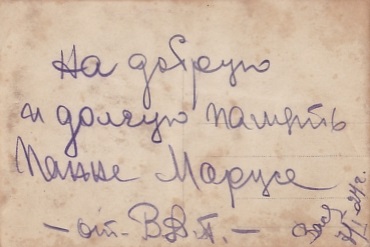 На добрую
и долгую память
Панне Марусе
- от - В.В.П. -